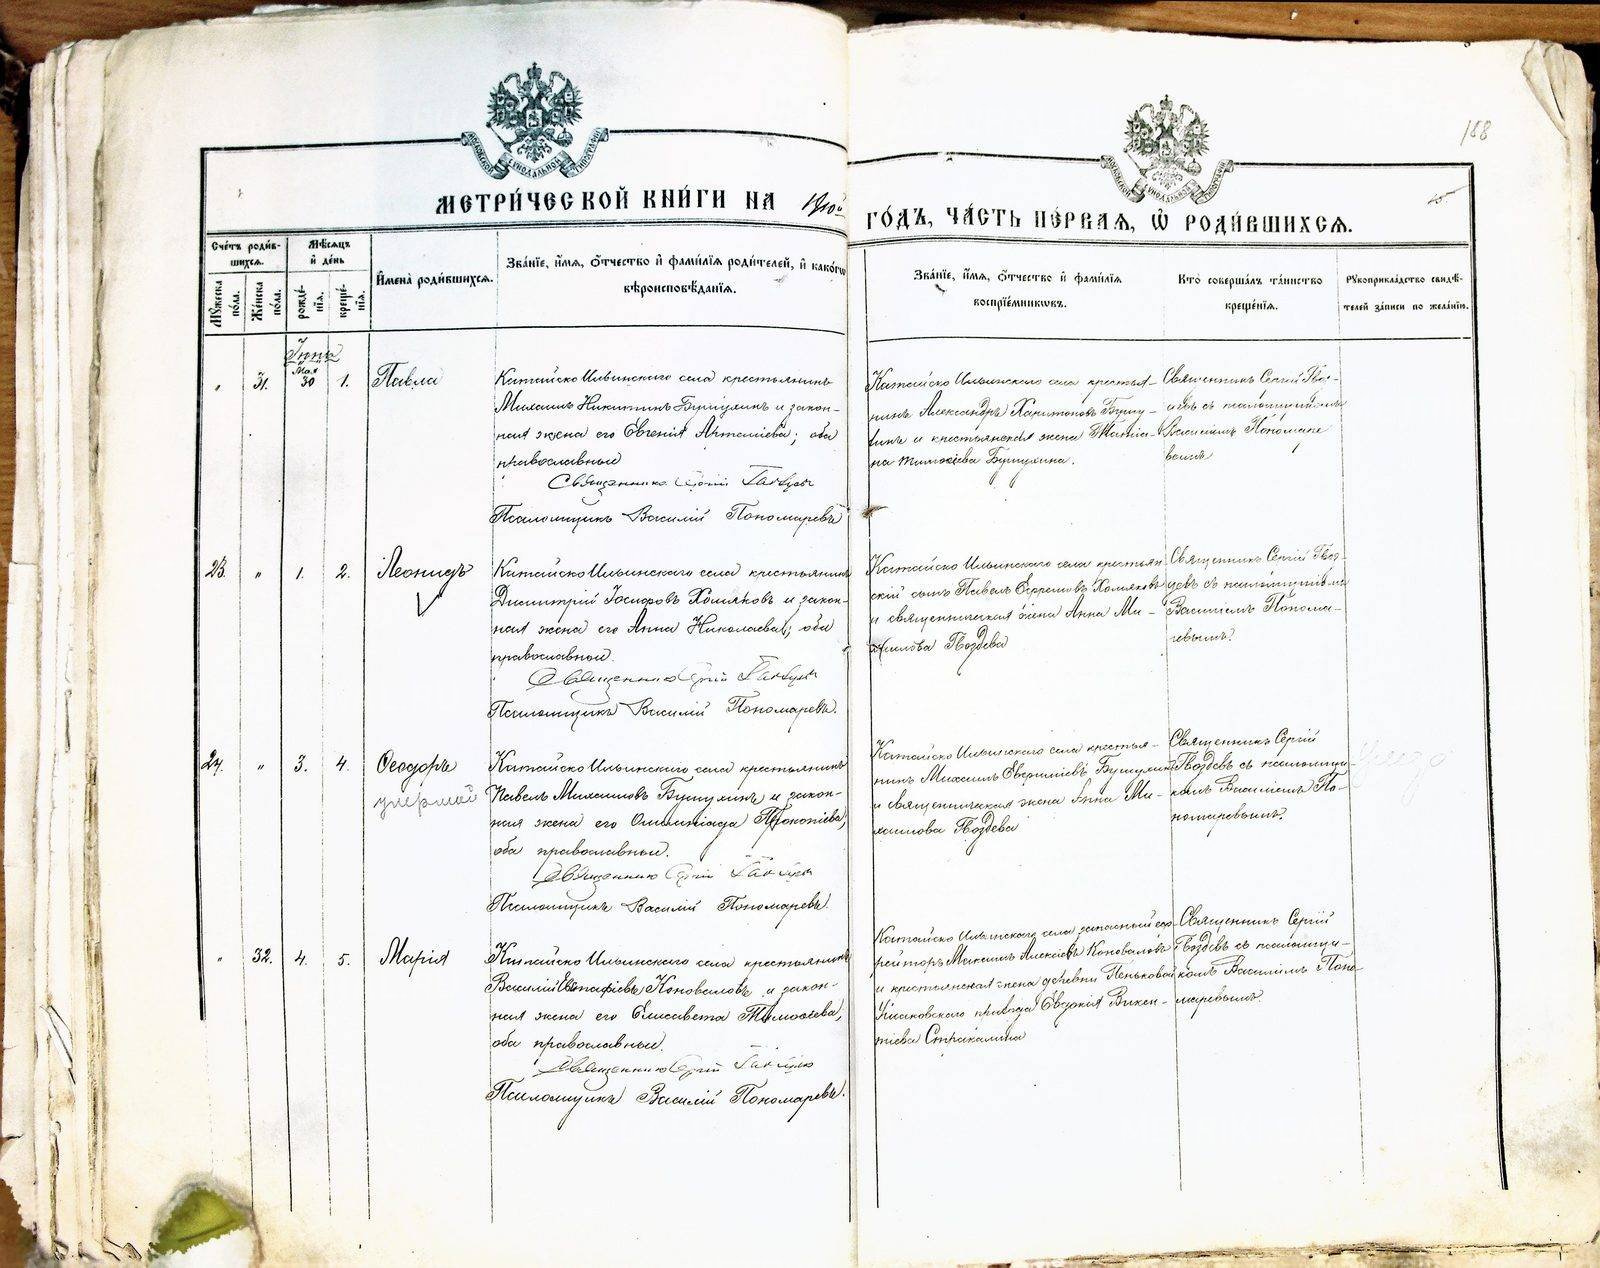 188
МОСКОВСКОЙ СѴНОДАЛЬНОЙ ТИПОГРАФІИ
МОСКОВСКОЙ СѴНОДАЛЬНОЙ ТИПОГРАФІИ
МЕТРИ́ЧЕСКОЙ КНИ́ГИ НА 1910й
ГО́ДЪ, ЧА́СТЬ ПЕ́РВАЯ, Ѿ РОДИ́ВШИХСЯ.
Сче́тъ роди́в-
шихся.
Мꙋ́жеска по́ла.
Же́нска по́ла.
Мѣ́сяцъ
и҆ де́нь
рожде́-
нія.
креще́-
нія.
И҆мена̀ роди́вшихся.
Зва́ніе, и҆́мя, ѻ҆́тчество и҆ фами́лія роди́телей, и҆ како́гѡ
вѣроисповѣ́данія.
Зва́ніе, и҆́мя, ѻ҆́тчество и҆ фами́лія
воспріе́мниковъ.
Кто̀ соверша́лъ та́инство
креще́нія.
Рꙋкоприкла́дство свидѣ́-
телей за́писи по жела́нію.
Іюнь
Мая
" 31. 30 1. Павла
Китайско Ильинскаго села крестьянинъ
Михаилъ Никитинъ Бушухинъ и закон-
ная жена его Евгенія Артеміева; оба
православные
Священникъ Сергій Гвоздевъ
Псаломщикъ Василій Пономаревъ
Китайско Ильинскаго села крестья-
нинъ Александръ Харитоновъ Бушу-
хинъ и крестьянская жена Татіа-
на Тимоѳіева Бушухина.
Священникъ Сергій Гвоз-
девъ съ псаломщикомъ
Василіемъ Пономаре
вымъ
23. " 1. 2. Леонидъ
Китайско Ильинскаго села крестьянинъ
Димитрій Іосифовъ Холяковъ и закон-
ная жена его Анна Николаева; оба
православные.
Священникъ Сергій Гвоздевъ
Псаломщикъ Василій Пономаревъ.
Китайско Ильинскаго села крестьян-
скій сынъ Павелъ Ефремовъ Холяковъ
и священническая жена Анна Ми-
хаилова Гвоздева
Священникъ Сергій Гвоз-
девъ съ псаломщикомъ
Василіемъ Понома-
ревымъ.
24. " 3. 4. Ѳеодоръ
умерший
Китайско Ильинскаго села крестьянинъ
Павелъ Михаиловъ Бушухинъ и закон-
ная жена его Олимпіада Прокопіева,
оба православные.
Священникъ Сергій Гвоздевъ
Псаломщикъ Василій Пономаревъ.
Китайско Ильинскаго села крестья-
нинъ Михаилъ Бушухинъ
и священническая жена Анна Ми-
хаилова Гвоздева
Священникъ Сергій
Гвоздевъ съ псаломщи-
комъ Василіемъ По-
номаревымъ.
" 32. 4. 5. Марія
Китайско Ильинскаго села крестьянинъ
Василій Коноваловъ и закон-
ная жена его Елисавета Тимоѳеева,
оба православные.
Священникъ Сергій Гвоздевъ
Псаломщикъ Василій Пономаревъ.
Китайско Ильинскаго села запасный еф-
рейторъ Максимъ Алексіевъ Коноваловъ
и крестьянская жена деревни Пеньковой
прихода Евдокія Викен-
тіева Стракалина
Священникъ Сергій
Гвоздевъ съ псаломщи-
комъ Василіемъ Поно-
маревымъ.